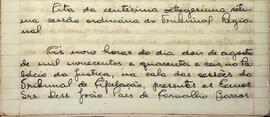 Ata da centesima octogesima setima
sessão ordinaria do Tribunal Regional
Ás nove horas do dia dois de agosto
de mil novecentos e quarenta e seis, no Palacio
da Justiça, na sala das sessões do
Tribunal de Apelação, presentes os Exmos
Srs. Dess. João Paes de Carvalho Barros